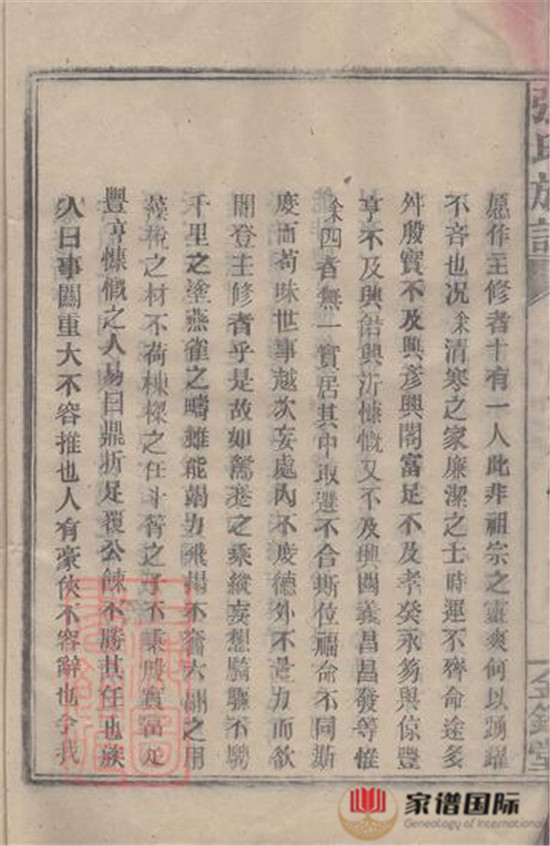 張氏族譜
金鏡堂
愿作主修者十有一人此非祖宗之靈爽何以踴躍
不吝也况余清寒之家廉潔之士時運不齊命途多
舛殷實不及興彥興閣富足不及孝癸永芻與倞豐
亨不及興皓興沂慷慨又不及興閣義昌昌發等惟
余四者無一實居其中取選不合斯位福命不同斯
度而苟昧世事越次妄處內不度德外不量力而欲
閣登主修者乎是故如駑蹇之乘縱妄想騎驥不騁
千里之塗燕雀之疇雖能竭力飛揚不奮六翮之用
藻梲之材不荷棟樑之任斗筲之子不乘殷實富足
豐亨慷慨之人易曰鼎折足覆公餗不勝其任也族
人曰事關重大不容推也人有豪俠不容辭也令我
家谱国际
Genealogy of International